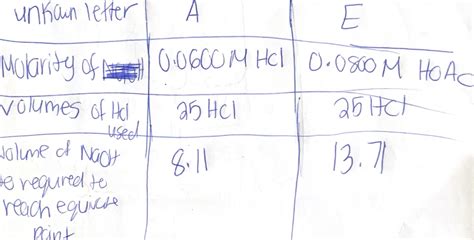 unknown letter A E
Molarity of 0.0600 M HCl 0.0800 M HOAc
Volumes of HCl 25 HCl 25 HCl
used
Volume of NaOH 8.11 13.71
required to
reach
point